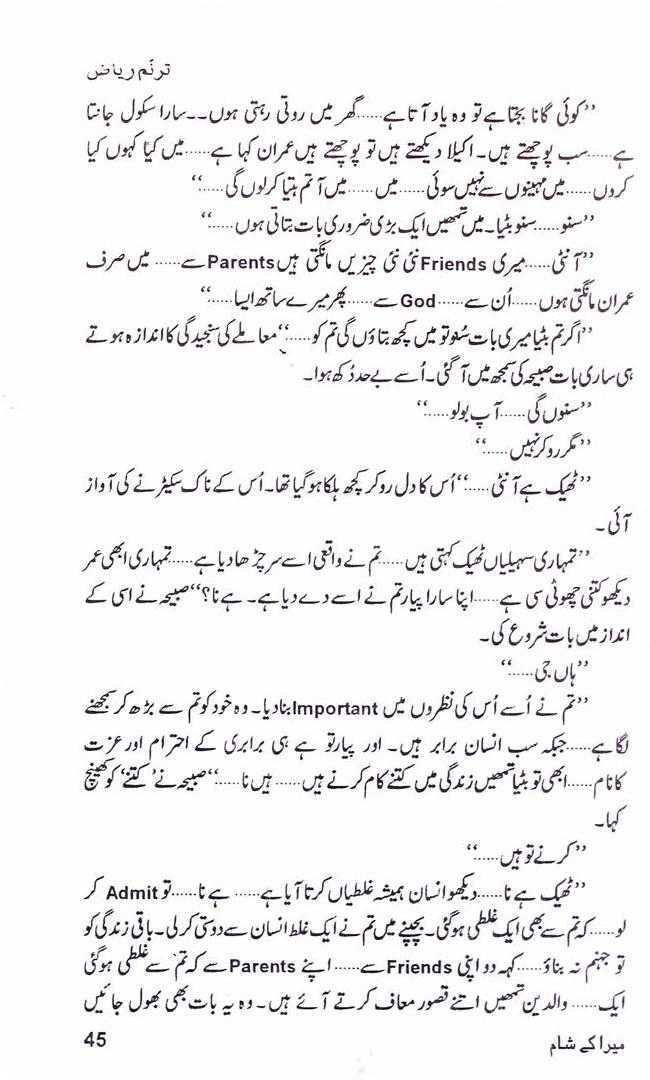 ترنّم ریاض
”کوئی گانا بجتا ہے تو وہ یاد آتا ہے......گھر میں روتی رہتی ہوں۔۔سارا سکول جانتا
ہے......سب پوچھتے ہیں۔ اکیلا دیکھتے ہیں تو پوچھتے ہیں عمران کہا ہے......میں کیا کہوں کیا
کروں......میں مہینوں سے نہیں سوئی......میں......میں آتم ہتیا کرلوں گی......“
”سنو......سنو بٹیا۔ میں تمھیں ایک بڑی ضروری بات بتاتی ہوں......“
”آنٹی......میری Friends نئی نئی چیزیں مانگتی ہیں Parents سے...... میں صرف
عمران مانگتی ہوں......اُن سے......God سے......پھر میرے ساتھ ایسا......“
”اگر تم بٹیا میری بات سُنو تو میں کچھ بتاؤں گی تم کو......“معاملے کی سنجیدگی کا اندازہ ہوتے
ہی ساری بات صبیحہ کی سمجھ میں آ گئی۔ اُسے بے حد دُکھ ہوا۔
”سنوں گی......آپ بولو......“
”مگر رو کر نہیں......“
”ٹھیک ہے آنٹی......“اُس کا دل رو کر کچھ ہلکا ہو گیا تھا۔ اُس کے ناک سکیڑنے کی آواز
آئی۔
”تمہاری سہیلیاں ٹھیک کہتی ہیں......تم نے واقعی اسے سر چڑھا دیا ہے......تمہاری ابھی عمر
دیکھو کتنی چھوٹی سی ہے......اپنا سارا پیار تم نے اسے دے دیا ہے۔ ہے نا؟“صبیحہ نے اسی کے
انداز میں بات شروع کی۔
”ہاں جی......“
”تم نے اُسے اُس کی نظروں میں Important بنا دیا۔ وہ خود کو تم سے بڑھ کر سمجھنے
لگا ہے......جبکہ سب انسان برابر ہیں۔ اور پیار تو ہے ہی برابری کے احترام اور عزت
کا نام......ابھی تو بٹیا تمھیں زندگی میں کتنے کام کرنے ہیں......ہیں نا......“صبیحہ نے ’کتنے‘ کو کھینچ
کہا۔
”کرنے تو ہیں......“
”ٹھیک ہے نا......دیکھو انسان ہمیشہ غلطیاں کرتا آیا ہے...... ہے نا......تو Admit کر
لو......کہ تم سے بھی ایک غلطی ہوگئی۔ بچپنے میں تم نے ایک غلط انسان سے دوستی کر لی۔ باقی زندگی کو
تو جہنم نہ بناؤ......کہہ دو اپنی Friends سے......اپنے Parents سے کہ تم سے غلطی ہوگئی
ایک......والدین تمھیں اتنے قصور معاف کرتے آئے ہیں۔ وہ یہ بات بھی بھول جائیں
میرا کے شام
45